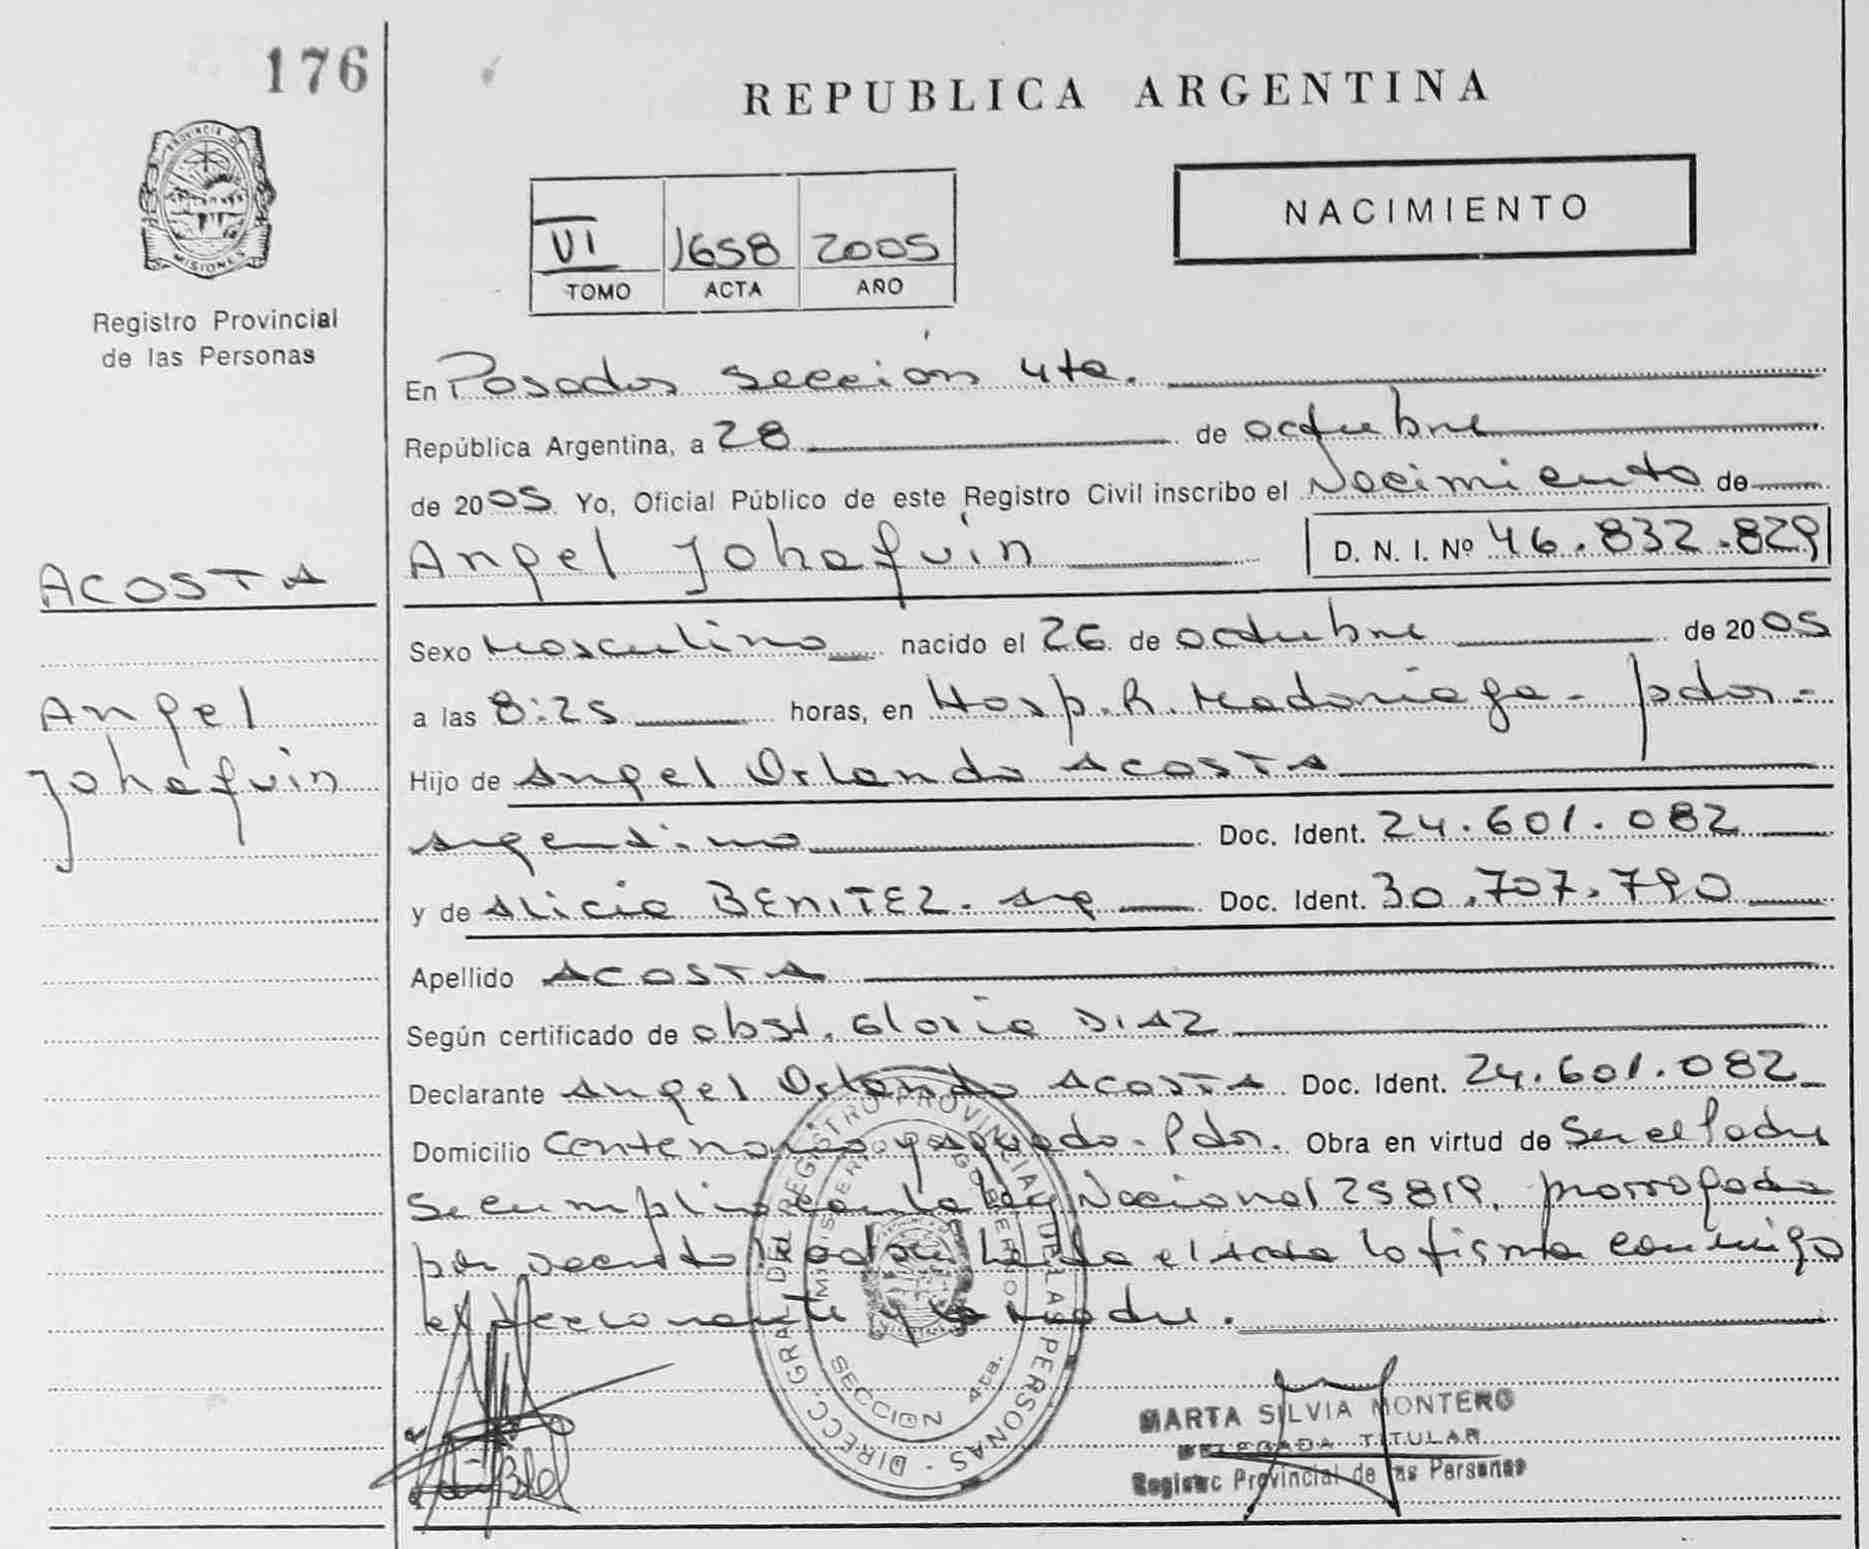 176
REPUBLICA ARGENTINA
PROVINCIA DE
MISIONES
Registro Provincial
de las Personas
NACIMIENTO
VI 1658 2005
TOMO ACTA AÑO
En Posadas Sección 4ta.
República Argentina, a 28 de octubre
de 2005 Yo, Oficial Público de este Registro Civil inscribo el Nacimiento de
ACOSTA
Angel Johaquin D. N. I. Nº 46.832.829
Sexo Masculino nacido el 26 de octubre de 2005
Angel
Johaquin
a las 8:25 horas, en Hosp. R. Madariaga - pdas -
Hijo de Angel Orlando ACOSTA
argentino Doc. Ident. 24.601.082
y de Alicia BENITEZ. arg Doc. Ident. 30.707.790
Apellido ACOSTA
Según certificado de obst. Gloria DIAZ
Declarante Angel Orlando ACOSTA Doc. Ident. 24.601.082
Domicilio Centenario y Pdas. Obra en virtud de Ser el Padre
Se cumplio con la Ley Nacional 25819, prorrogada
por decreto Leida el Acta la firma conmigo
el declarante y la madre.
DIRECC. GRAL. DEL REGISTRO PROVINCIAL DE LAS PERSONAS
MINISTERIO DE GOBIERNO
SECCION 4ta.
MARTA SILVIA MONTERO
DELEGADA TITULAR
Registro Provincial de las Personas